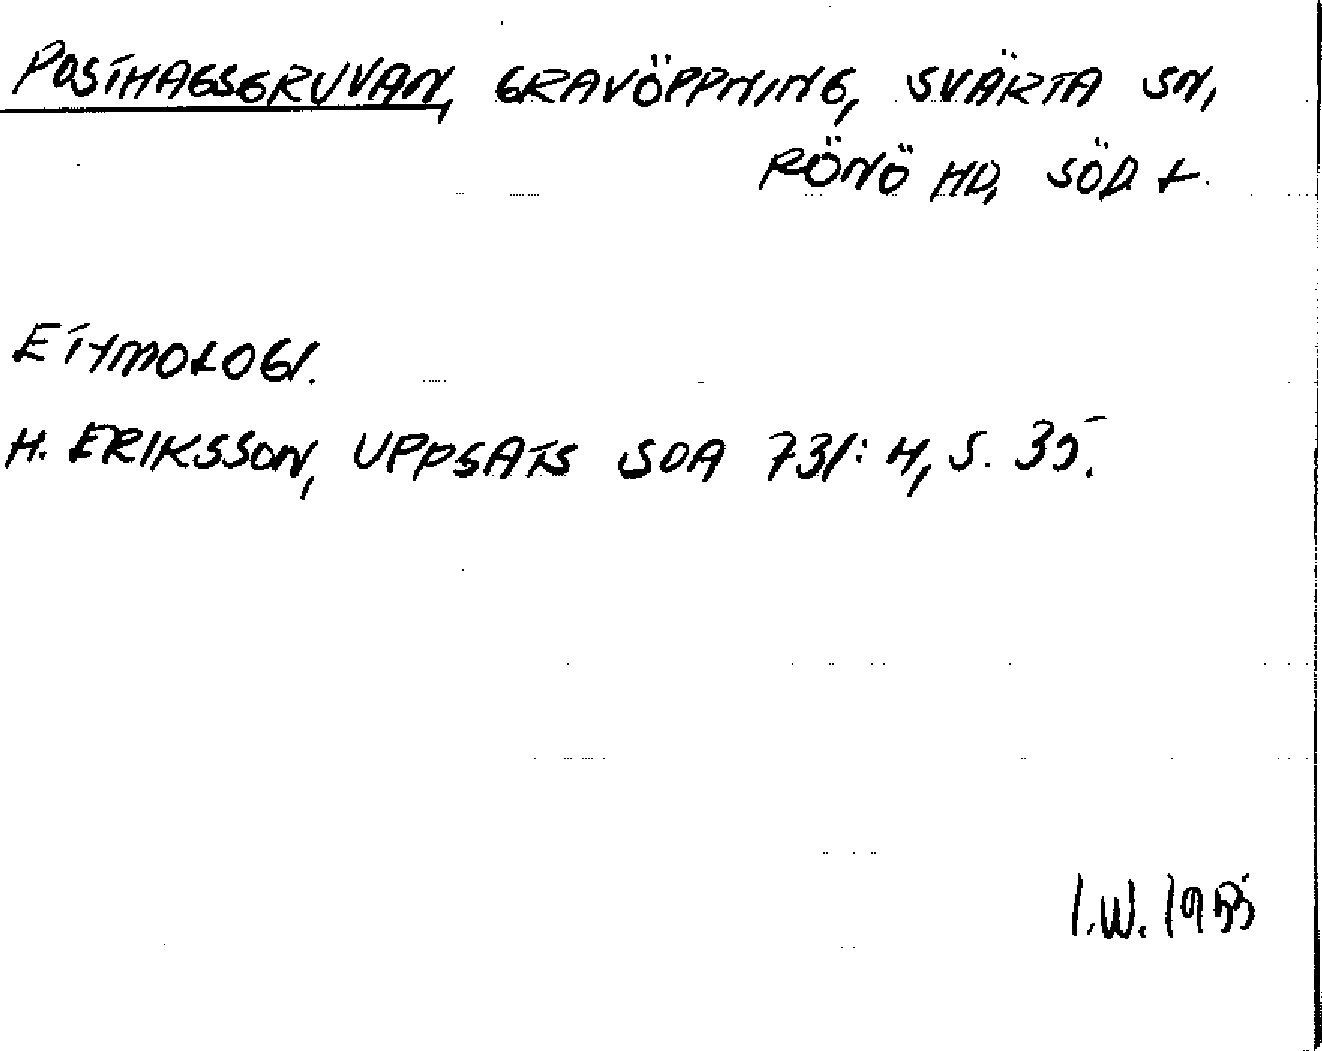 POSTHAGSGRUVAN, GRAVÖPPNING, SVÄRTA SN,
RÖNÖ HD, SÖD. L.
ETYMOLOGI.
H. ERIKSSON, UPPSATS SOA 731:4, S. 35.
I.W.